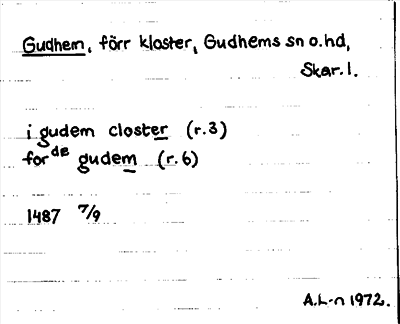 Gudhem, förr kloster, Gudhems sn o. hd,
Skar. l.
i gudem closter (r. 3)
for de gudem (r. 6)
1487 7/9
A.L-n 1972.